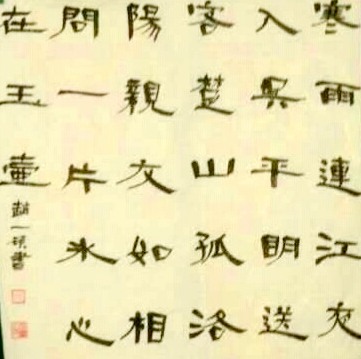 寒雨連江夜
入吳平明送
客楚山孤洛
陽親友如相
問一片冰心
在玉壺
趙一琪書